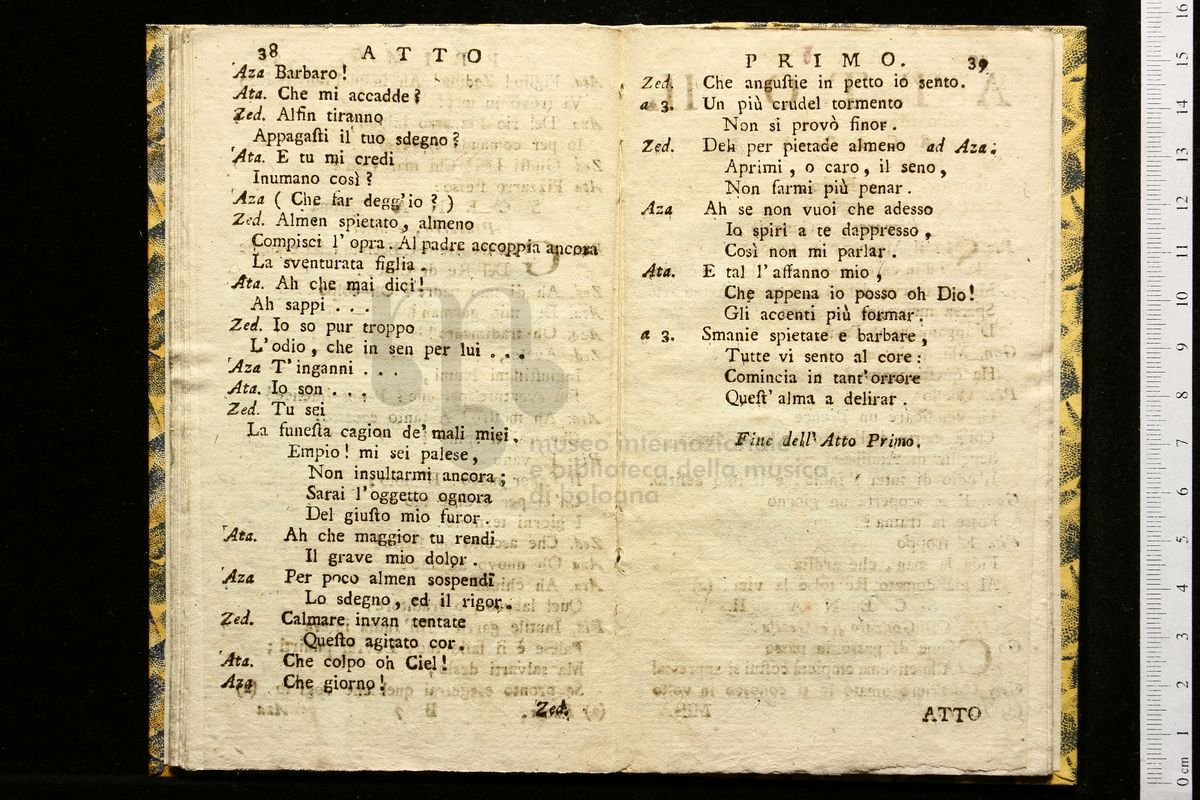 38 ATTO
Aza Barbaro!
Ata. Che mi accadde?
Zed. Alfin tiranno
Appagaſti il tuo sdegno?
Ata. E tu mi credi
Inumano così?
Aza ( Che far degg'io? )
Zed. Almen spietato, almeno
Compisci l'opra. Al padre accoppia ancora
La sventurata figlia.
Ata. Ah che mai dici!
Ah sappi . . .
Zed. Io so pur troppo
L'odio, che in sen per lui . . .
Aza T'inganni . . .
Ata. Io son . . .
Zed. Tu sei
La funeſta cagion de' mali miei.
Empio! mi sei palese,
Non insultarmi ancora;
Sarai l'oggetto ognora
Del giuſto mio furor.
Ata. Ah che maggior tu rendi
Il grave mio dolor.
Aza Per poco almen sospendi
Lo sdegno, ed il rigor.
Zed. Calmare invan tentate
Queſto agitato cor.
Ata. Che colpo oh Ciel!
Aza Che giorno!
Zed.
PRIMO. 39
Zed. Che anguſtie in petto io sento.
a 3. Un più crudel tormento
Non si provò finor.
Zed. Deh per pietade almeno ad Aza:
Aprimi, o caro, il seno,
Non farmi più penar.
Aza Ah se non vuoi che adesso
Io spiri a te dappresso,
Così non mi parlar.
Ata. E tal l'affanno mio,
Che appena io posso oh Dio!
Gli accenti più formar.
a 3. Smanie spietate e barbare,
Tutte vi sento al core:
Comincia in tant'orrore
Queſt' alma a delirar.
Fine dell' Atto Primo.
ATTO
museo internazionale
e biblioteca della musica
di bologna
0 cm 1 2 3 4 5 6 7 8 9 10 11 12 13 14 15 16